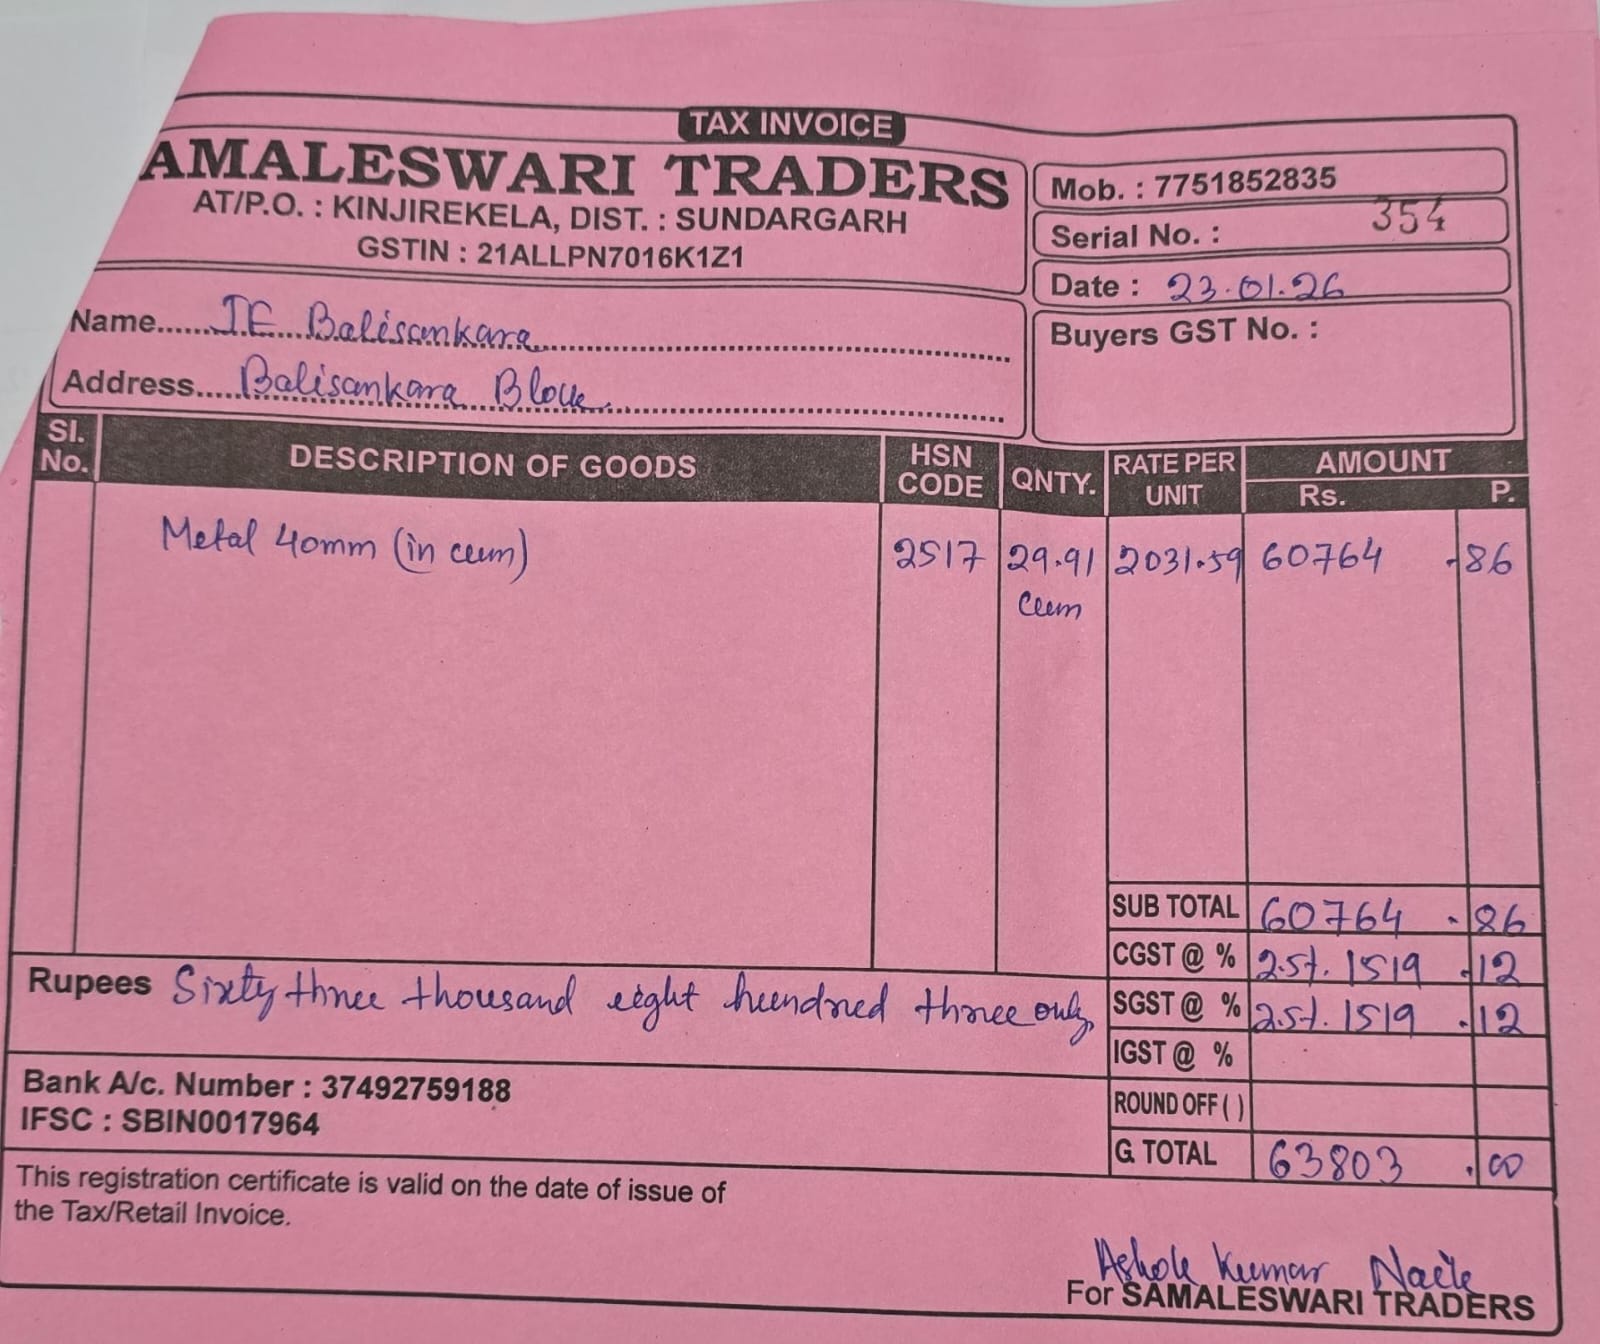 TAX INVOICE
AMALESWARI TRADERS
AT/P.O. : KINJIREKELA, DIST. : SUNDARGARH
GSTIN : 21ALLPN7016K1Z1
Mob. : 7751852835
Serial No. : 354
Date : 23.01.26
Buyers GST No. :
Name...... JE Balisankara
Address..... Balisankara Block
Sl. No. DESCRIPTION OF GOODS HSN CODE QNTY. RATE PER UNIT AMOUNT Rs. P.
Metal 40mm (in cum) 2517 29.91 cum 2031.59 60764 .86
SUB TOTAL 60764 .86
CGST @ % 2.5%. 1519 .12
SGST @ % 2.5%. 1519 .12
IGST @ %
ROUND OFF ( )
G. TOTAL 63803 .00
Rupees Sixty three thousand eight hundred three only
Bank A/c. Number : 37492759188
IFSC : SBIN0017964
This registration certificate is valid on the date of issue of
the Tax/Retail Invoice.
Ashok Kumar Naik
For SAMALESWARI TRADERS